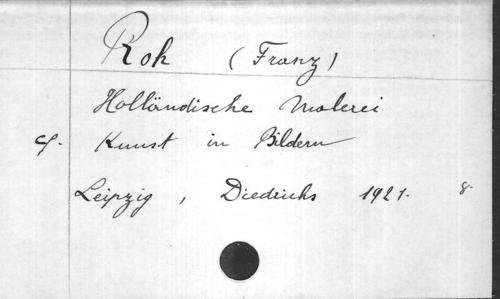 Roh (Franz)
Holländische Malerei
cf. Kunst in Bildern
Leipzig, Diedrichs 1921. 8.